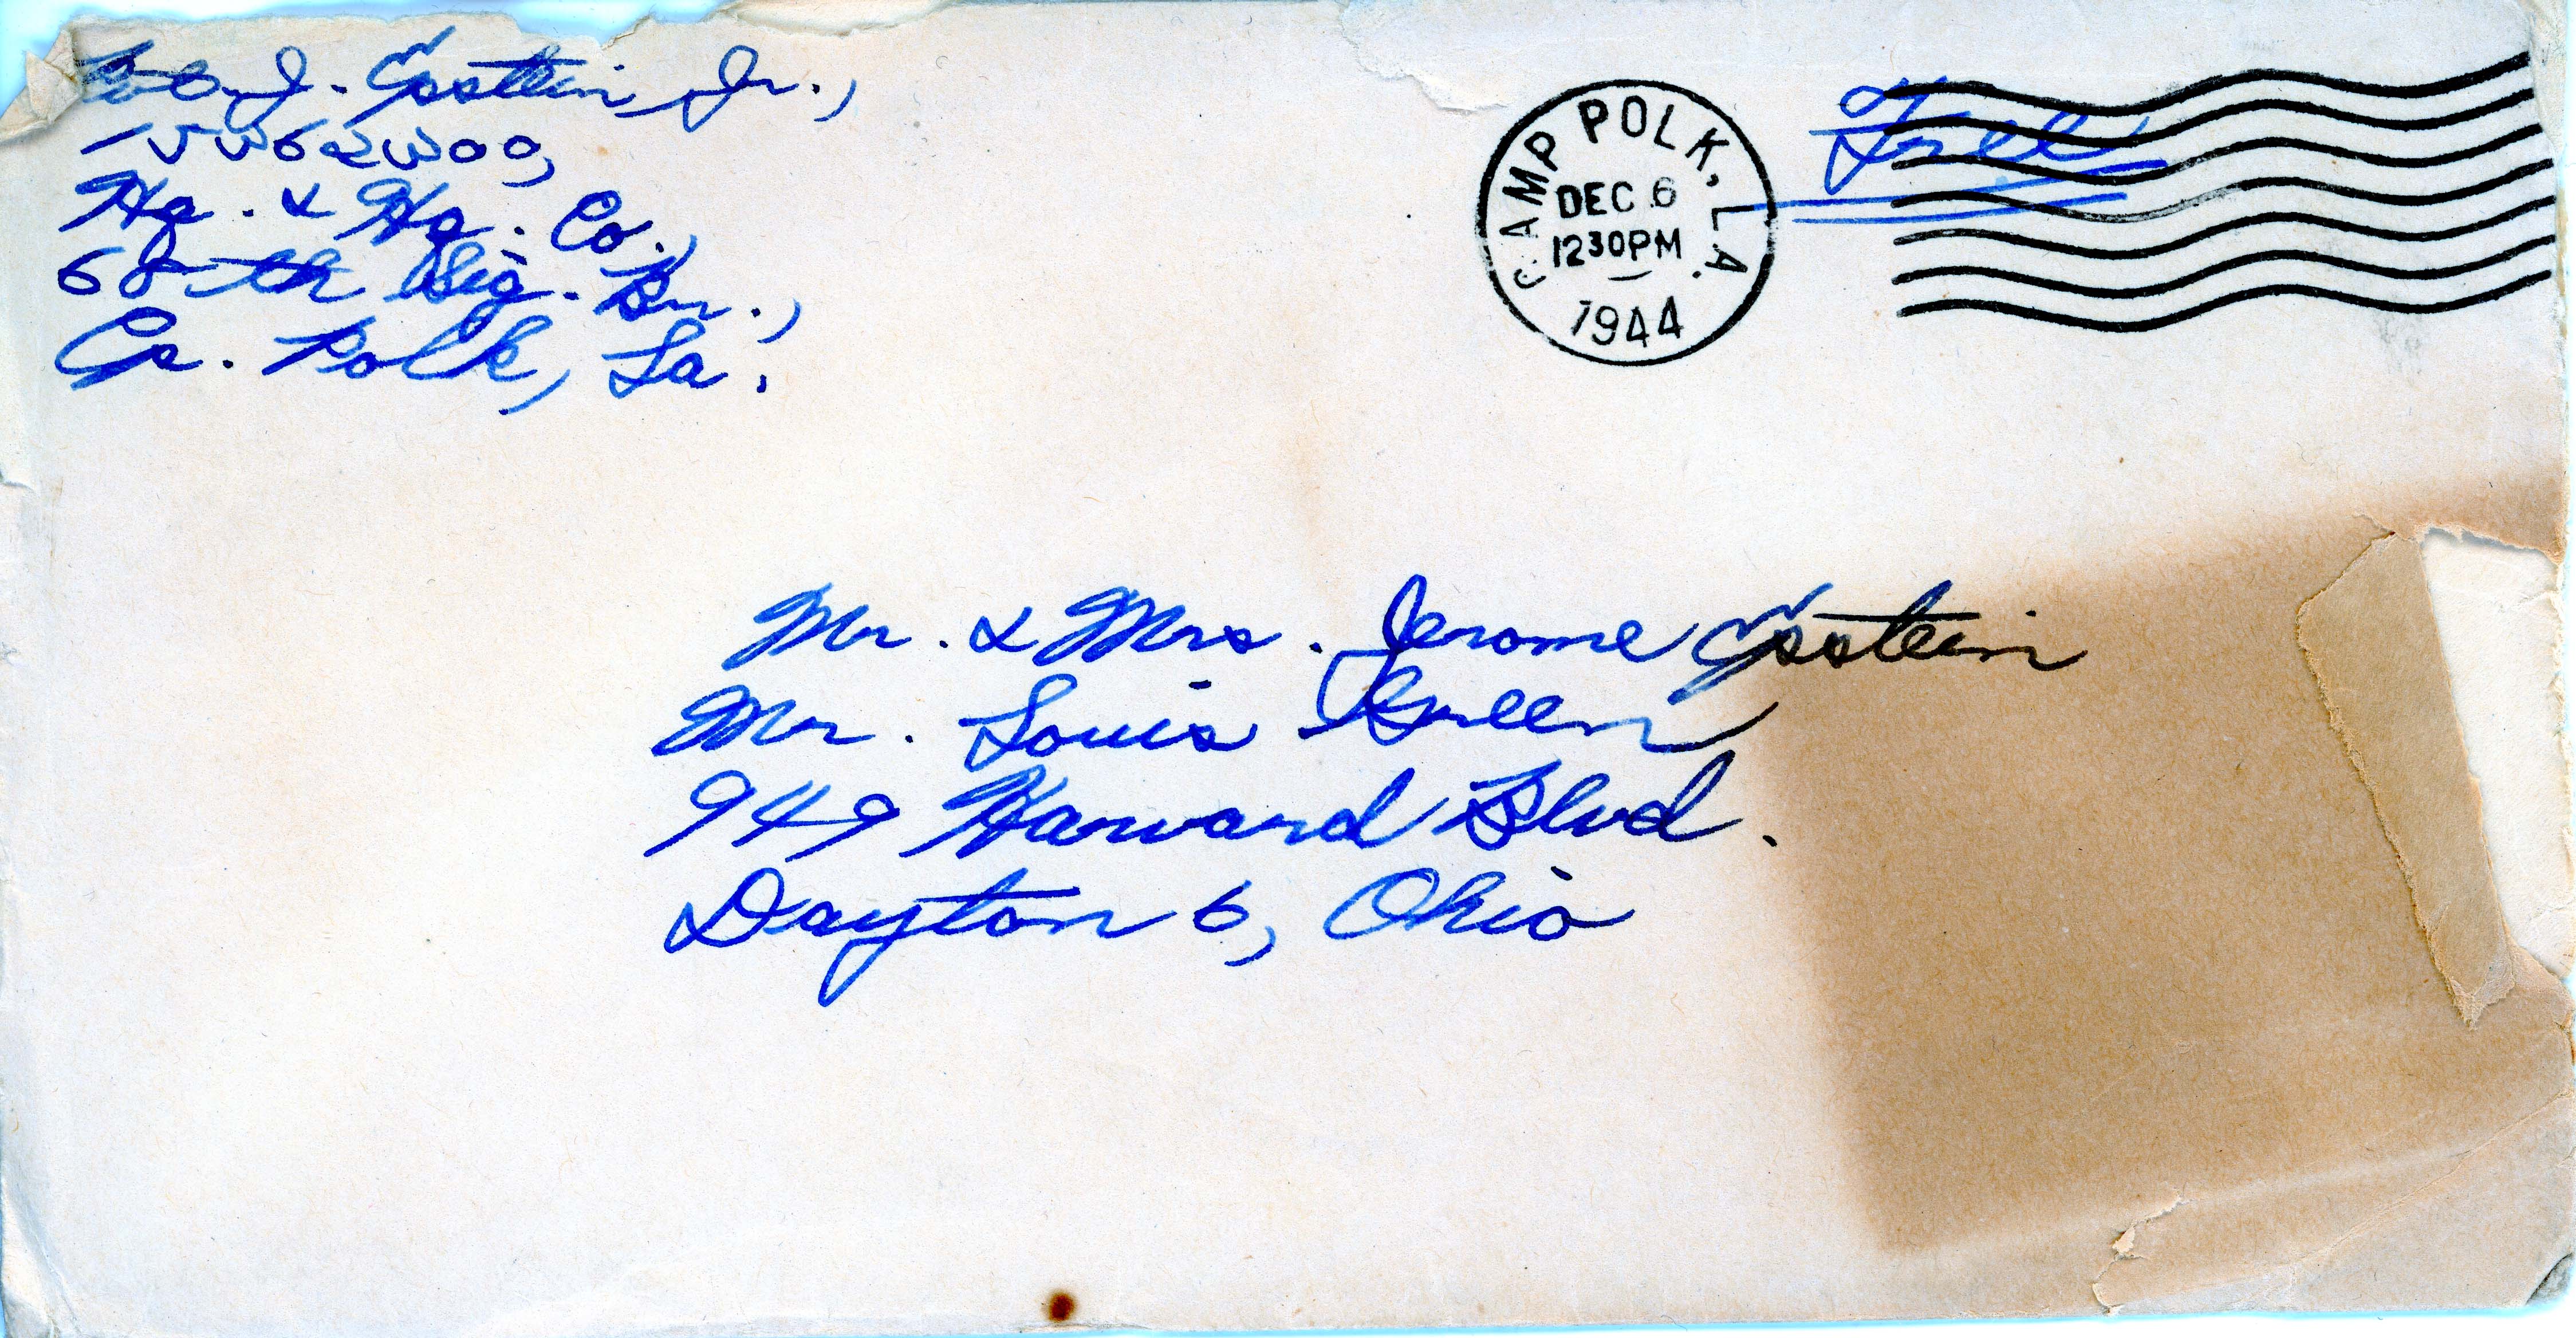 J. Epstein, Jr.,
Hq. & Hq. Co.,
68th Sig. Bn.,
Cp. Polk, La.
CAMP POLK, LA.
DEC 6
1230PM
1944
Free
Mr. & Mrs. Jerome Epstein
Mr. Louis Green
949 Harvard Blvd.
Dayton 6, Ohio